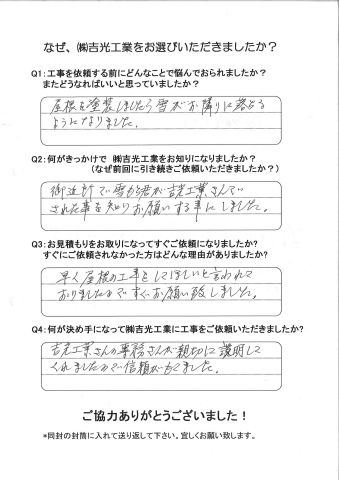 なぜ、㈱吉光工業をお選びいただきましたか？
Q1：工事を依頼する前にどんなことで悩んでおられましたか？
またどうなればいいと思っていましたか？
屋根を塗装しましたら雪がお隣りに落ちる
ようになりました。
Q2：何がきっかけで ㈱吉光工業をお知りになりましたか？
（なぜ前回に引き続きご依頼いただきましたか？）
御近所で雪
吉光工業さんで
された事を知りお願いする事にしました。
Q3：お見積もりをお取りになってすぐご依頼になりましたか？
すぐにご依頼されなかった方はどんな理由がありましたか？
早く屋根の工事をしてほしいと言われて
おりましたのですぐお願い致しました。
Q4：何が決め手になって㈱吉光工業に工事をご依頼いただきましたか？
吉光工業さんの事務さんが親切に説明して
くれましたので信頼ができました。
ご協力ありがとうございました！
*同封の封筒に入れて送り返して下さい。宜しくお願い致します。